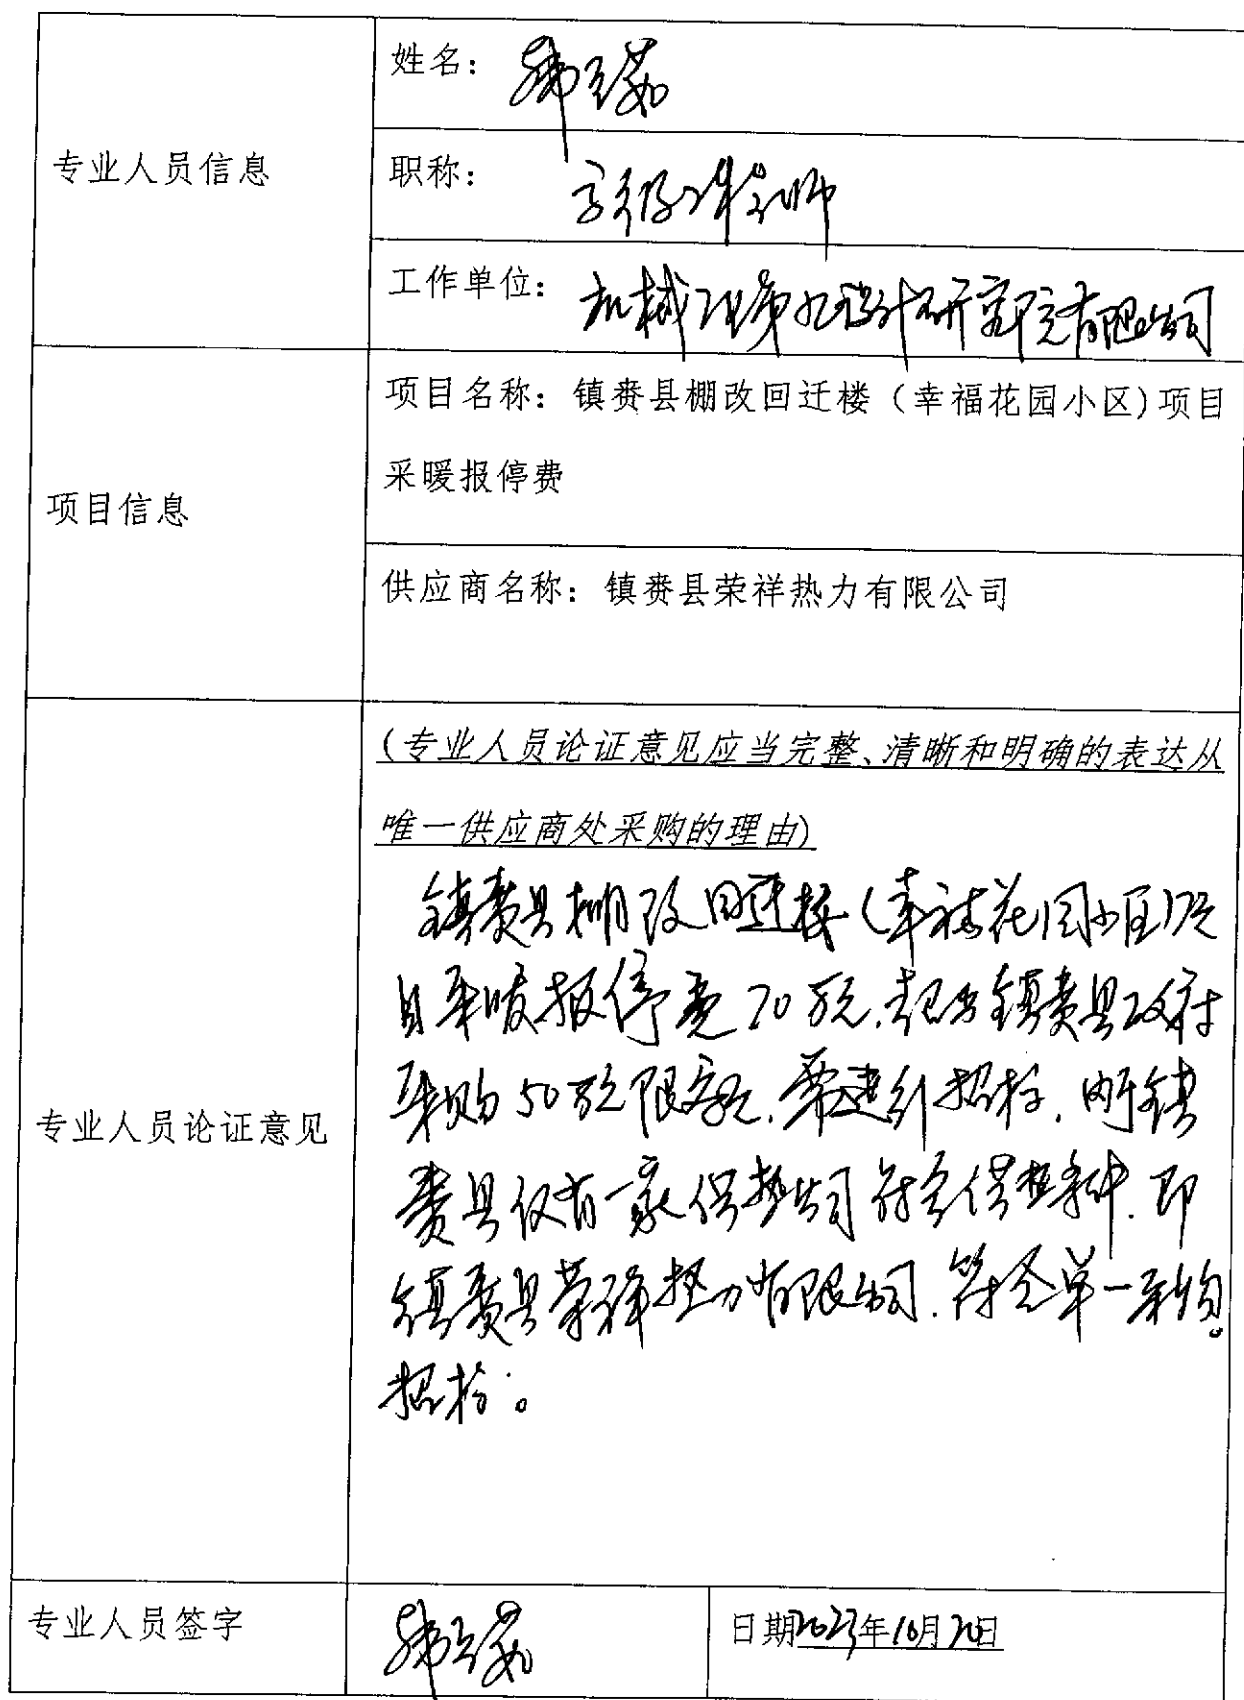 姓名：
专业人员信息
职称：高级工程师
工作单位：机械工业第九设计研究院有限公司
项目名称：镇赉县棚改回迁楼（幸福花园小区）项目
采暖报停费
项目信息
供应商名称：镇赉县荣祥热力有限公司
（专业人员论证意见应当完整、清晰和明确的表达从
唯一供应商处采购的理由）
镇赉县棚改回迁楼（幸福花园小区）项
目采暖报停费70万元，超出镇赉县政府
采购50万元限额，需进行招标，由于镇
赉县仅有一家供热公司符合供热条件，即
镇赉县荣祥热力有限公司，符合单一采购
招标。
专业人员论证意见
专业人员签字
日期2023年10月20日